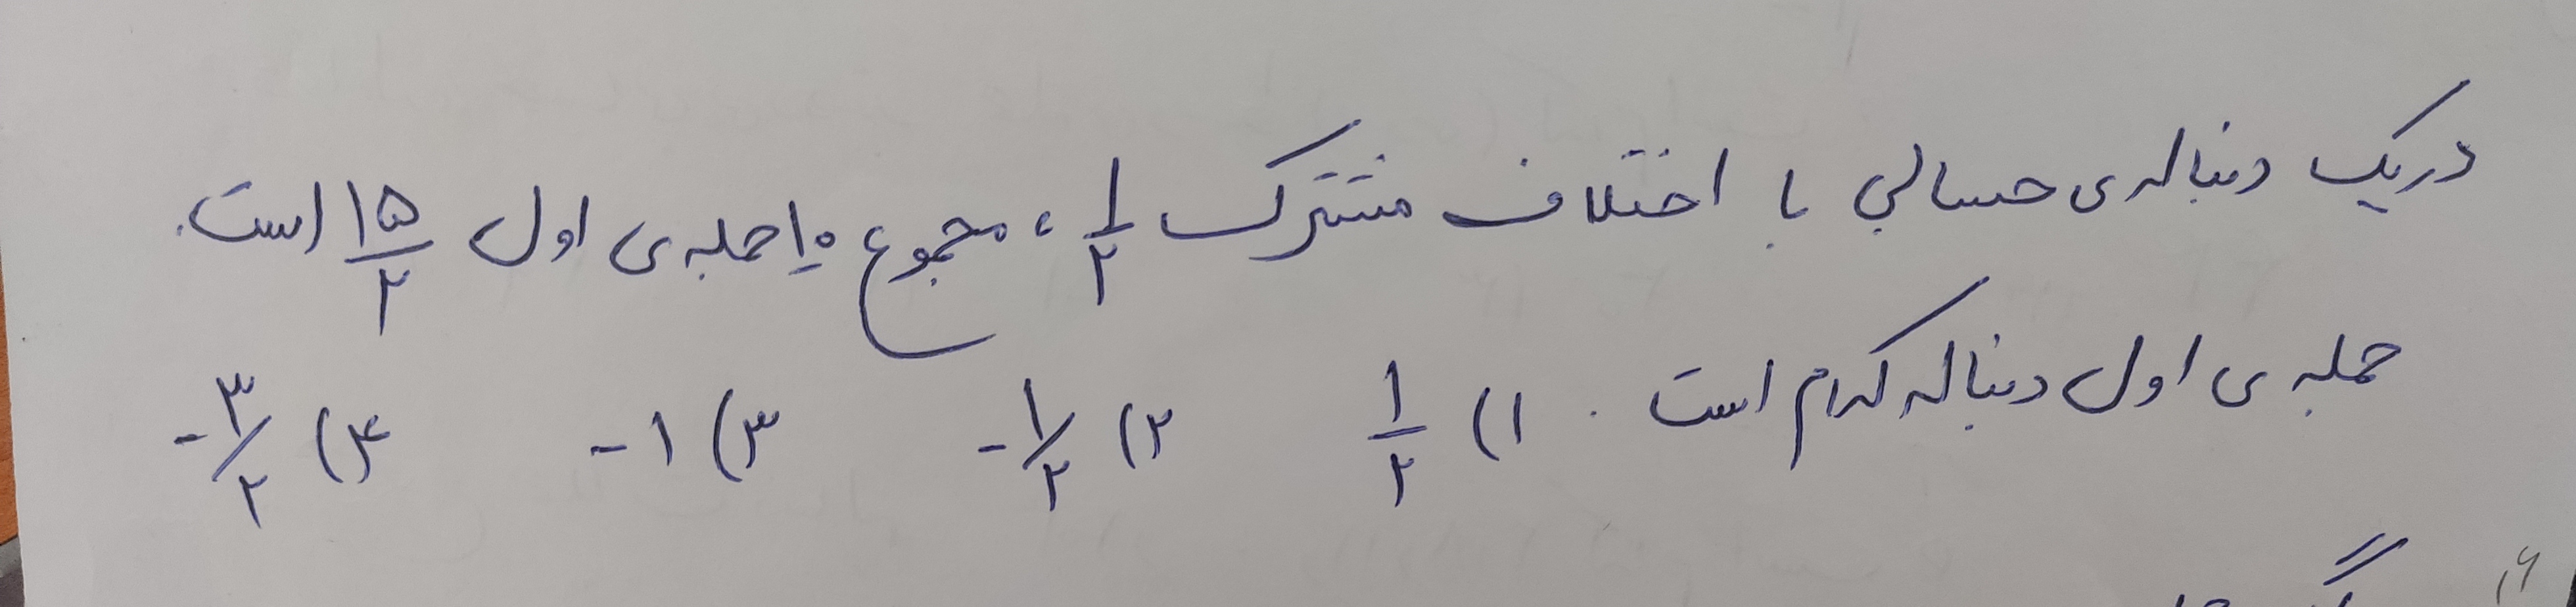 در یک دنباله ی حسابی با اختلاف مشترک ۱/۲ ، مجموع ۱۰ جمله ی اول ۱۵/۲ است.
جمله ی اول دنباله کدام است . ۱) ۱/۲ ۲) -۱/۲ ۳) -۱ ۴) -۳/۲
۱۶